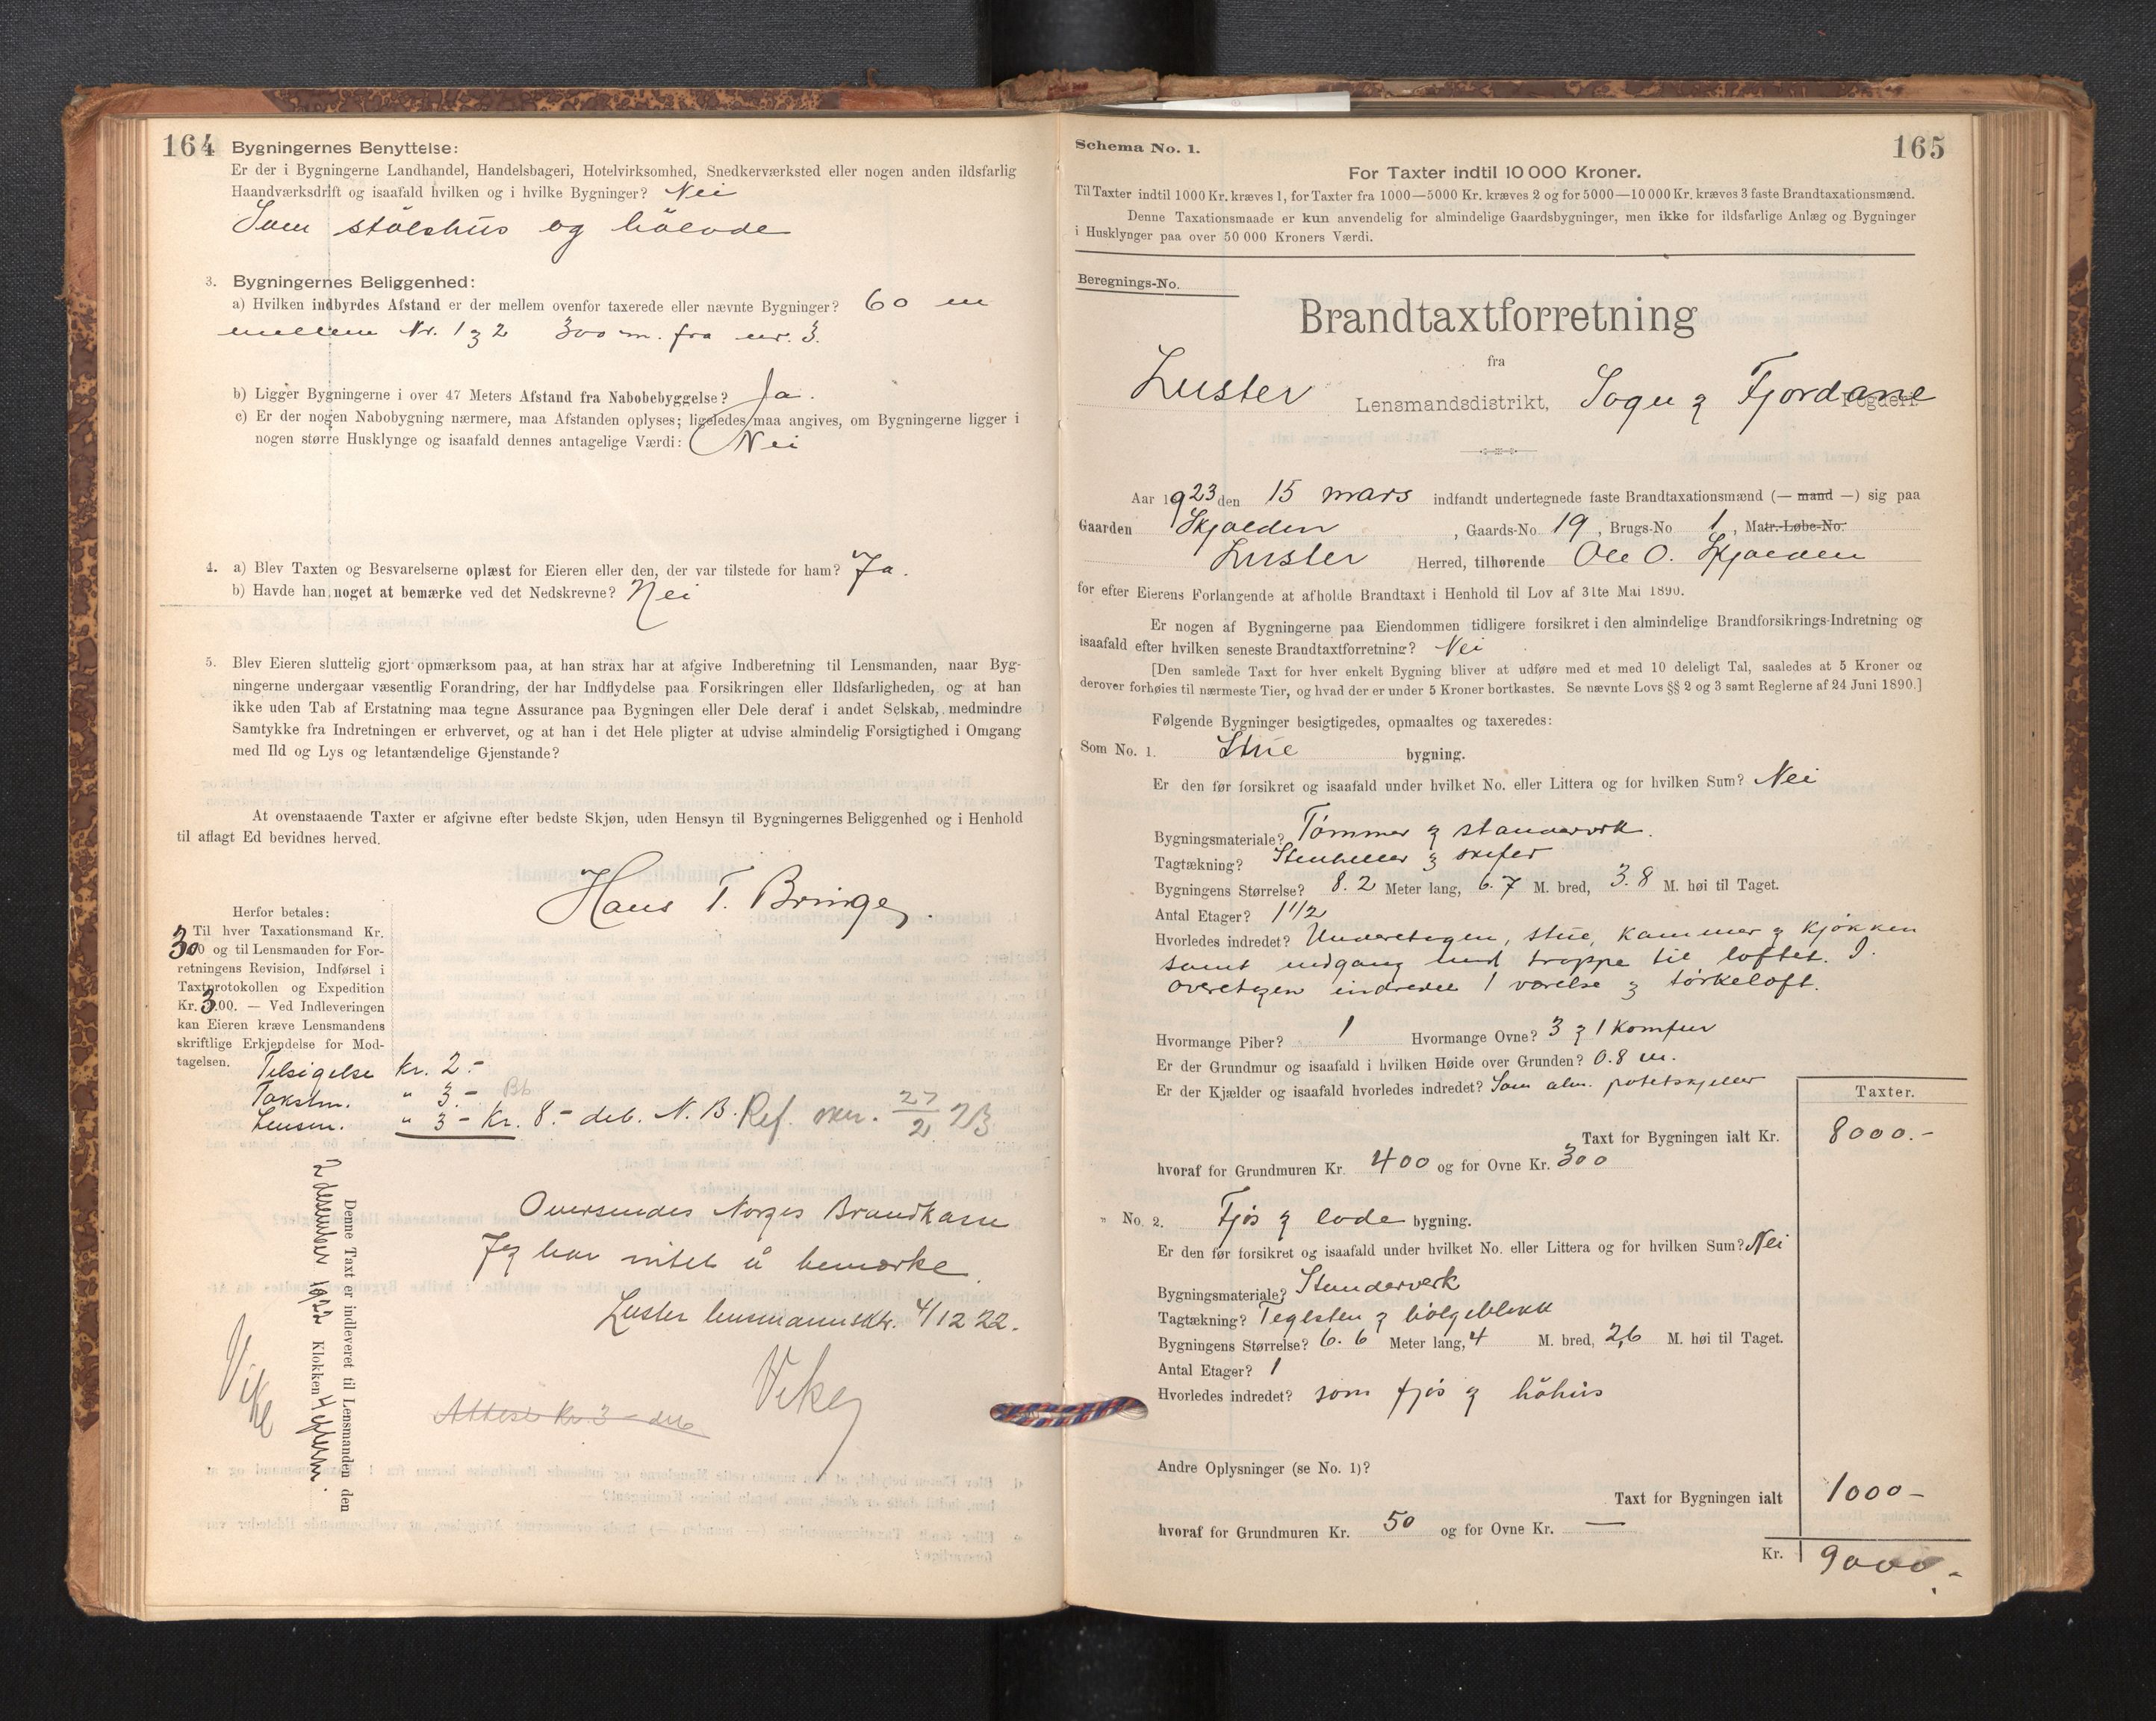 164
Bygningernes Benyttelse:
Er der i Bygningerne Landhandel, Handelsbageri, Hotelvirksomhed, Snedkerværksted eller nogen anden ildsfarlig
Haandværksdrift og isaafald hvilken og i hvilke Bygninger? Nei
Som stölshus og hölode
3. Bygningernes Beliggenhed:
a) Hvilken indbyrdes Afstand er der mellem ovenfor taxerede eller nævnte Bygninger? 60 m
mellem Nr. 1 & 2 300 m. fra nr. 3.
b) Ligger Bygningerne i over 47 Meters Afstand fra Nabobebyggelse? Ja.
c) Er der nogen Nabobygning nærmere, maa Afstanden oplyses; ligeledes maa angives, om Bygningerne ligger i
nogen større Husklynge og isaafald dennes antagelige Værdi: Nei
4. a) Blev Taxten og Besvarelserne oplæst for Eieren eller den, der var tilstede for ham? Ja.
b) Havde han noget at bemærke ved det Nedskrevne? Nei
5. Blev Eieren sluttelig gjort opmærksom paa, at han strax har at afgive Indberetning til Lensmanden, naar Byg-
ningerne undergaar væsentlig Forandring, der har Indflydelse paa Forsikringen eller Ildsfarligheden, og at han
ikke uden Tab af Erstatning maa tegne Assurance paa Bygningen eller Dele deraf i andet Selskab, medmindre
Samtykke fra Indretningen er erhvervet, og at han i det Hele pligter at udvise almindelig Forsigtighed i Omgang
med Ild og Lys og letantændelige Gjenstande?
At ovenstaaende Taxter er afgivne efter bedste Skjøn, uden Hensyn til Bygningernes Beliggenhed og i Henhold
til aflagt Ed bevidnes herved.
Hans T. Bringe
Herfor betales:
Til hver Taxationsmand Kr.
3.00 og til Lensmanden for For-
retningens Revision, Indførsel i
Taxtprotokollen og Expedition
Kr. 3.00. — Ved Indleveringen
kan Eieren kræve Lensmandens
skriftlige Erkjendelse for Mod-
tagelsen.
Tilsigelse Kr. 2.-
Takstm. " 3.-
Lensm. " 3 - Kr. 8.- deb. N. B. Ref. 27/2 23
Denne Taxt er indleveret til Lensmanden den
2 desember 1922 Klokken 4 efterm.
Vike
Oversendes Norges Brandkasse
Jeg har intet å bemærke.
Luster lensmannsktr. 4/12 22.
Vike
Attest Kr. 3 - deb
165
Schema No. 1.
For Taxter indtil 10 000 Kroner.
Til Taxter indtil 1000 Kr. kræves 1, for Taxter fra 1000—5000 Kr. kræves 2 og for 5000—10 000 Kr. kræves 3 faste Brandtaxationsmænd.
Denne Taxationsmaade er kun anvendelig for almindelige Gaardsbygninger, men ikke for ildsfarlige Anlæg og Bygninger
i Husklynger paa over 50 000 Kroners Værdi.
Beregnings-No.
Brandtaxtforretning
fra
Luster Lensmandsdistrikt, Sogn & Fjordane Fogderi.
Aar 1923 den 15 mars indfandt undertegnede faste Brandtaxationsmænd (— mand —) sig paa
Gaarden Skjolden, Gaards-No 19, Brugs-No 1, Matr.-Løbe-No.
Luster Herred, tilhørende Ole O. Skjolden
for efter Eierens Forlangende at afholde Brandtaxt i Henhold til Lov af 31te Mai 1890.
Er nogen af Bygningerne paa Eiendommen tidligere forsikret i den almindelige Brandforsikrings-Indretning og
isaafald efter hvilken seneste Brandtaxtforretning? Nei
[Den samlede Taxt for hver enkelt Bygning bliver at udføre med et med 10 deleligt Tal, saaledes at 5 Kroner og
derover forhøies til nærmeste Tier, og hvad der er under 5 Kroner bortkastes. Se nævnte Lovs §§ 2 og 3 samt Reglerne af 24 Juni 1890.]
Følgende Bygninger besigtigedes, opmaaltes og taxeredes:
Som No. 1. Stue bygning.
Er den før forsikret og isaafald under hvilket No. eller Littera og for hvilken Sum? Nei
Bygningsmateriale? Tømmer & standerverk.
Tagtækning? Stenheller & skifer
Bygningens Størrelse? 8.2 Meter lang, 6.7 M. bred, 3.8 M. høi til Taget.
Antal Etager? 1 1/2
Hvorledes indredet? Underetagen, stue, kammer & kjøkken
samt indgang med trappe til loftet. I
overetagen indredet 1 værelse & tørkeloft.
Hvormange Piber? 1 Hvormange Ovne? 3 & 1 komfur
Er der Grundmur og isaafald i hvilken Høide over Grunden? 0.8 m.
Er der Kjælder og isaafald hvorledes indredet? Som alm. potetskjeller
Taxter.
Taxt for Bygningen ialt Kr. 8000.-
hvoraf for Grundmuren Kr. 400 og for Ovne Kr. 300
" No. 2. Fjøs & lade bygning.
Er den før forsikret og isaafald under hvilket No. eller Littera og for hvilken Sum? Nei
Bygningsmateriale? Standerverk
Tagtækning? Teglsten & bølgeblekk
Bygningens Størrelse? 6.6 Meter lang, 4 M. bred, 2,6 M. høi til Taget.
Antal Etager? 1
Hvorledes indredet? som fjøs & höhus
Andre Oplysninger (se No. 1)?
Taxt for Bygningen ialt 1000-
hvoraf for Grundmuren Kr. 50 og for Ovne Kr. —
Kr. 9000.-